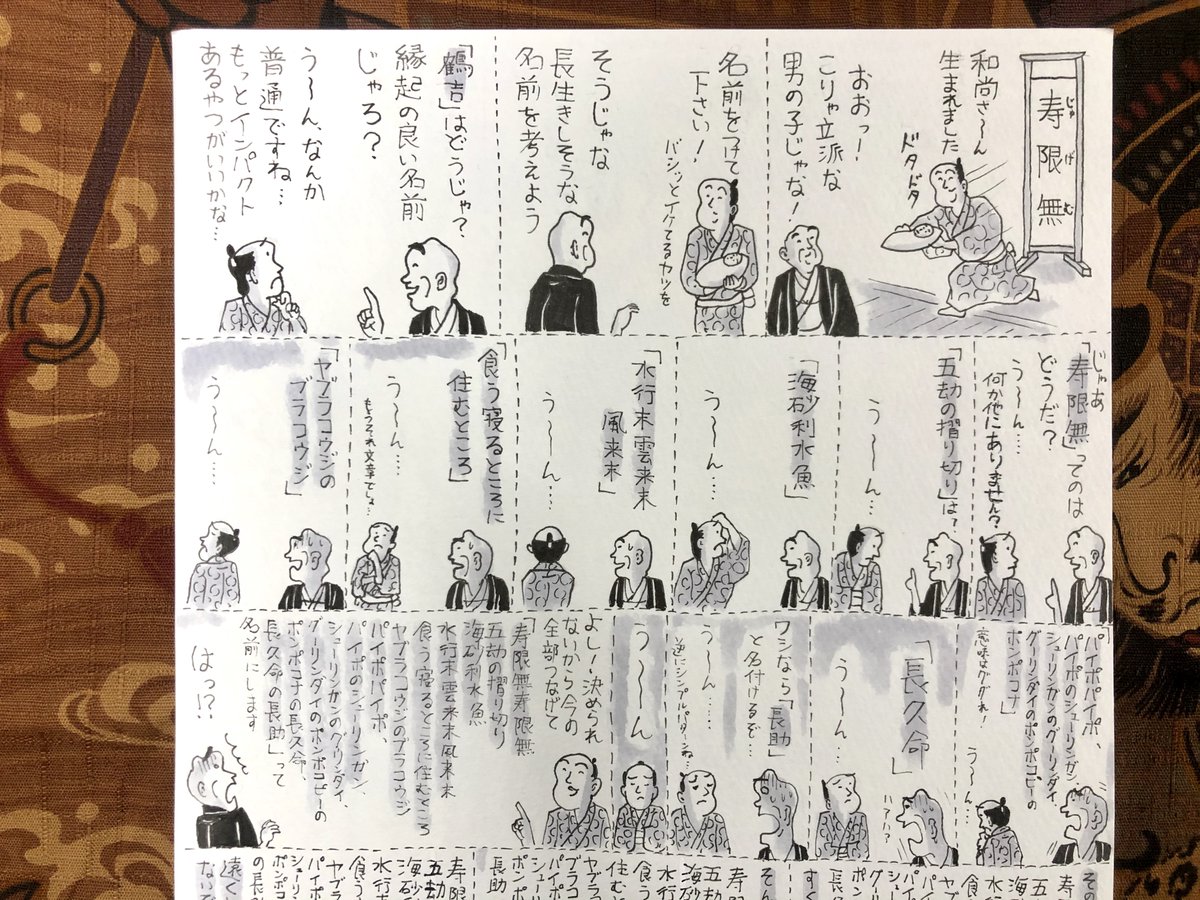 寿限無
じゅげむ
和尚さ〜ん
生まれました
ドタドタ
おおっ!
こりゃ立派な
男の子じゃな!
名前を付て
下さい!
バシッとイケてるヤツを
そうじゃな
長生きしそうな
名前を考えよう
「鶴吉」はどうじゃ?
縁起の良い名前
じゃろ?
う〜ん、なんか
普通ですね…
もっとインパクト
あるやつがいいかな…
じゃあ
「寿限無」ってのは
どうだ?
う〜ん…
何か他にありません?
「五劫の摺り切り」は?
う〜〜ん…
「海砂利水魚」
う〜〜ん….
「水行末雲来末
風来末」
う〜〜ん….
「食う寝るところに
住むところ」
う〜〜ん….
もうそれ文章でしょ…
「ヤブラコウジの
ブラコウジ」
う〜〜ん….
「パイポパイポ、
パイポのシューリンガン、
シューリンガンのグーリンダイ
グーリンダイのポンポコピーの
ポンポコナ」
意味よグダれ!
う〜〜ん、
「長久命」
ハァハァ
う〜〜ん…
ワシなら「長助」
と名付けるぞ…
う〜〜ん……
逆にシンプルパターンね…
う〜〜ん
よし!決められ
ないから今の
全部つなげて
「寿限無寿限無
五劫の摺り切り
海砂利水魚
水行末雲来末風来末
食う寝るところに住むところ
ヤブラコウジのブラコウジ
パイポパイポ、
パイポのシューリンガン
シューリンガンのグーリンダイ
グーリンダイのポンポコピーの
ポンポコナの長久命、
長久命の長助」って
名前にします
はっ!?
その
寿
五
海砂
水行
食
長助
寿
五劫
海砂
水行
食う
住む
ヤブラ
ブラコ
パイポ
シューリ
ポンポ
長助
寿限
五劫
海砂
水行
食う
ヤブラ
パイポ
シューリン
ポンポコ
の長
遠く
ないで